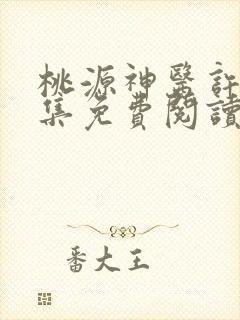 桃源神醫許
集免費閱讀
番大王